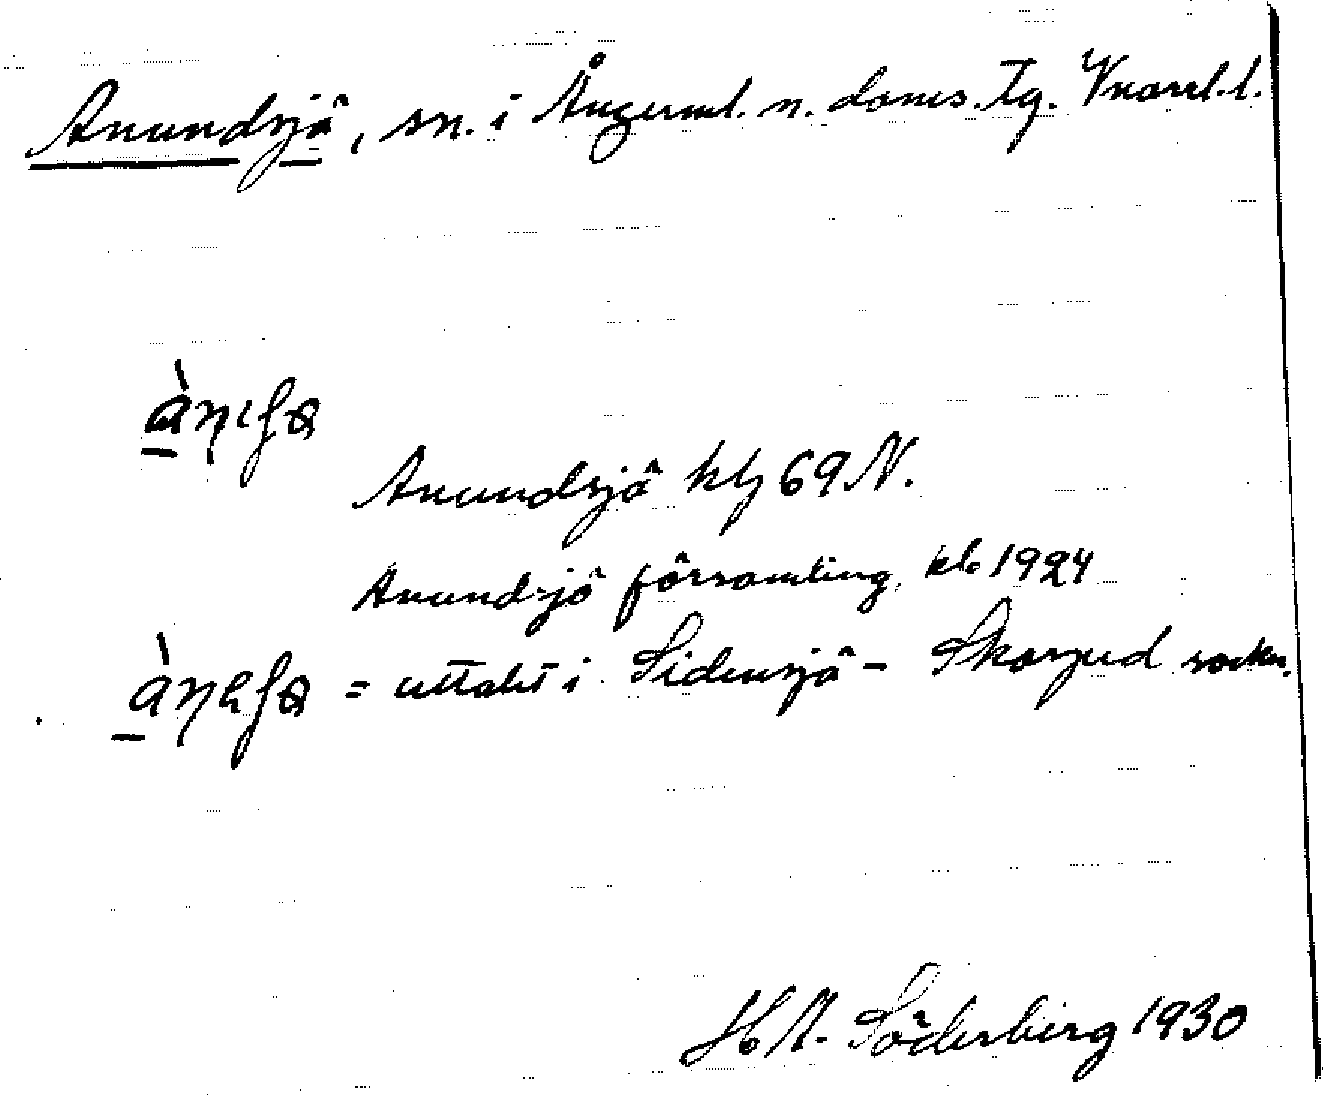 Anundsjö, sn. i Ångerml. n. doms. Tg. Vnorrl. l.
Anundsjö kbg 69 N.
Anundsjö församling, kk 1924
= uttalet i Sidensjö - Skorped sockn.
Söderberg 1930